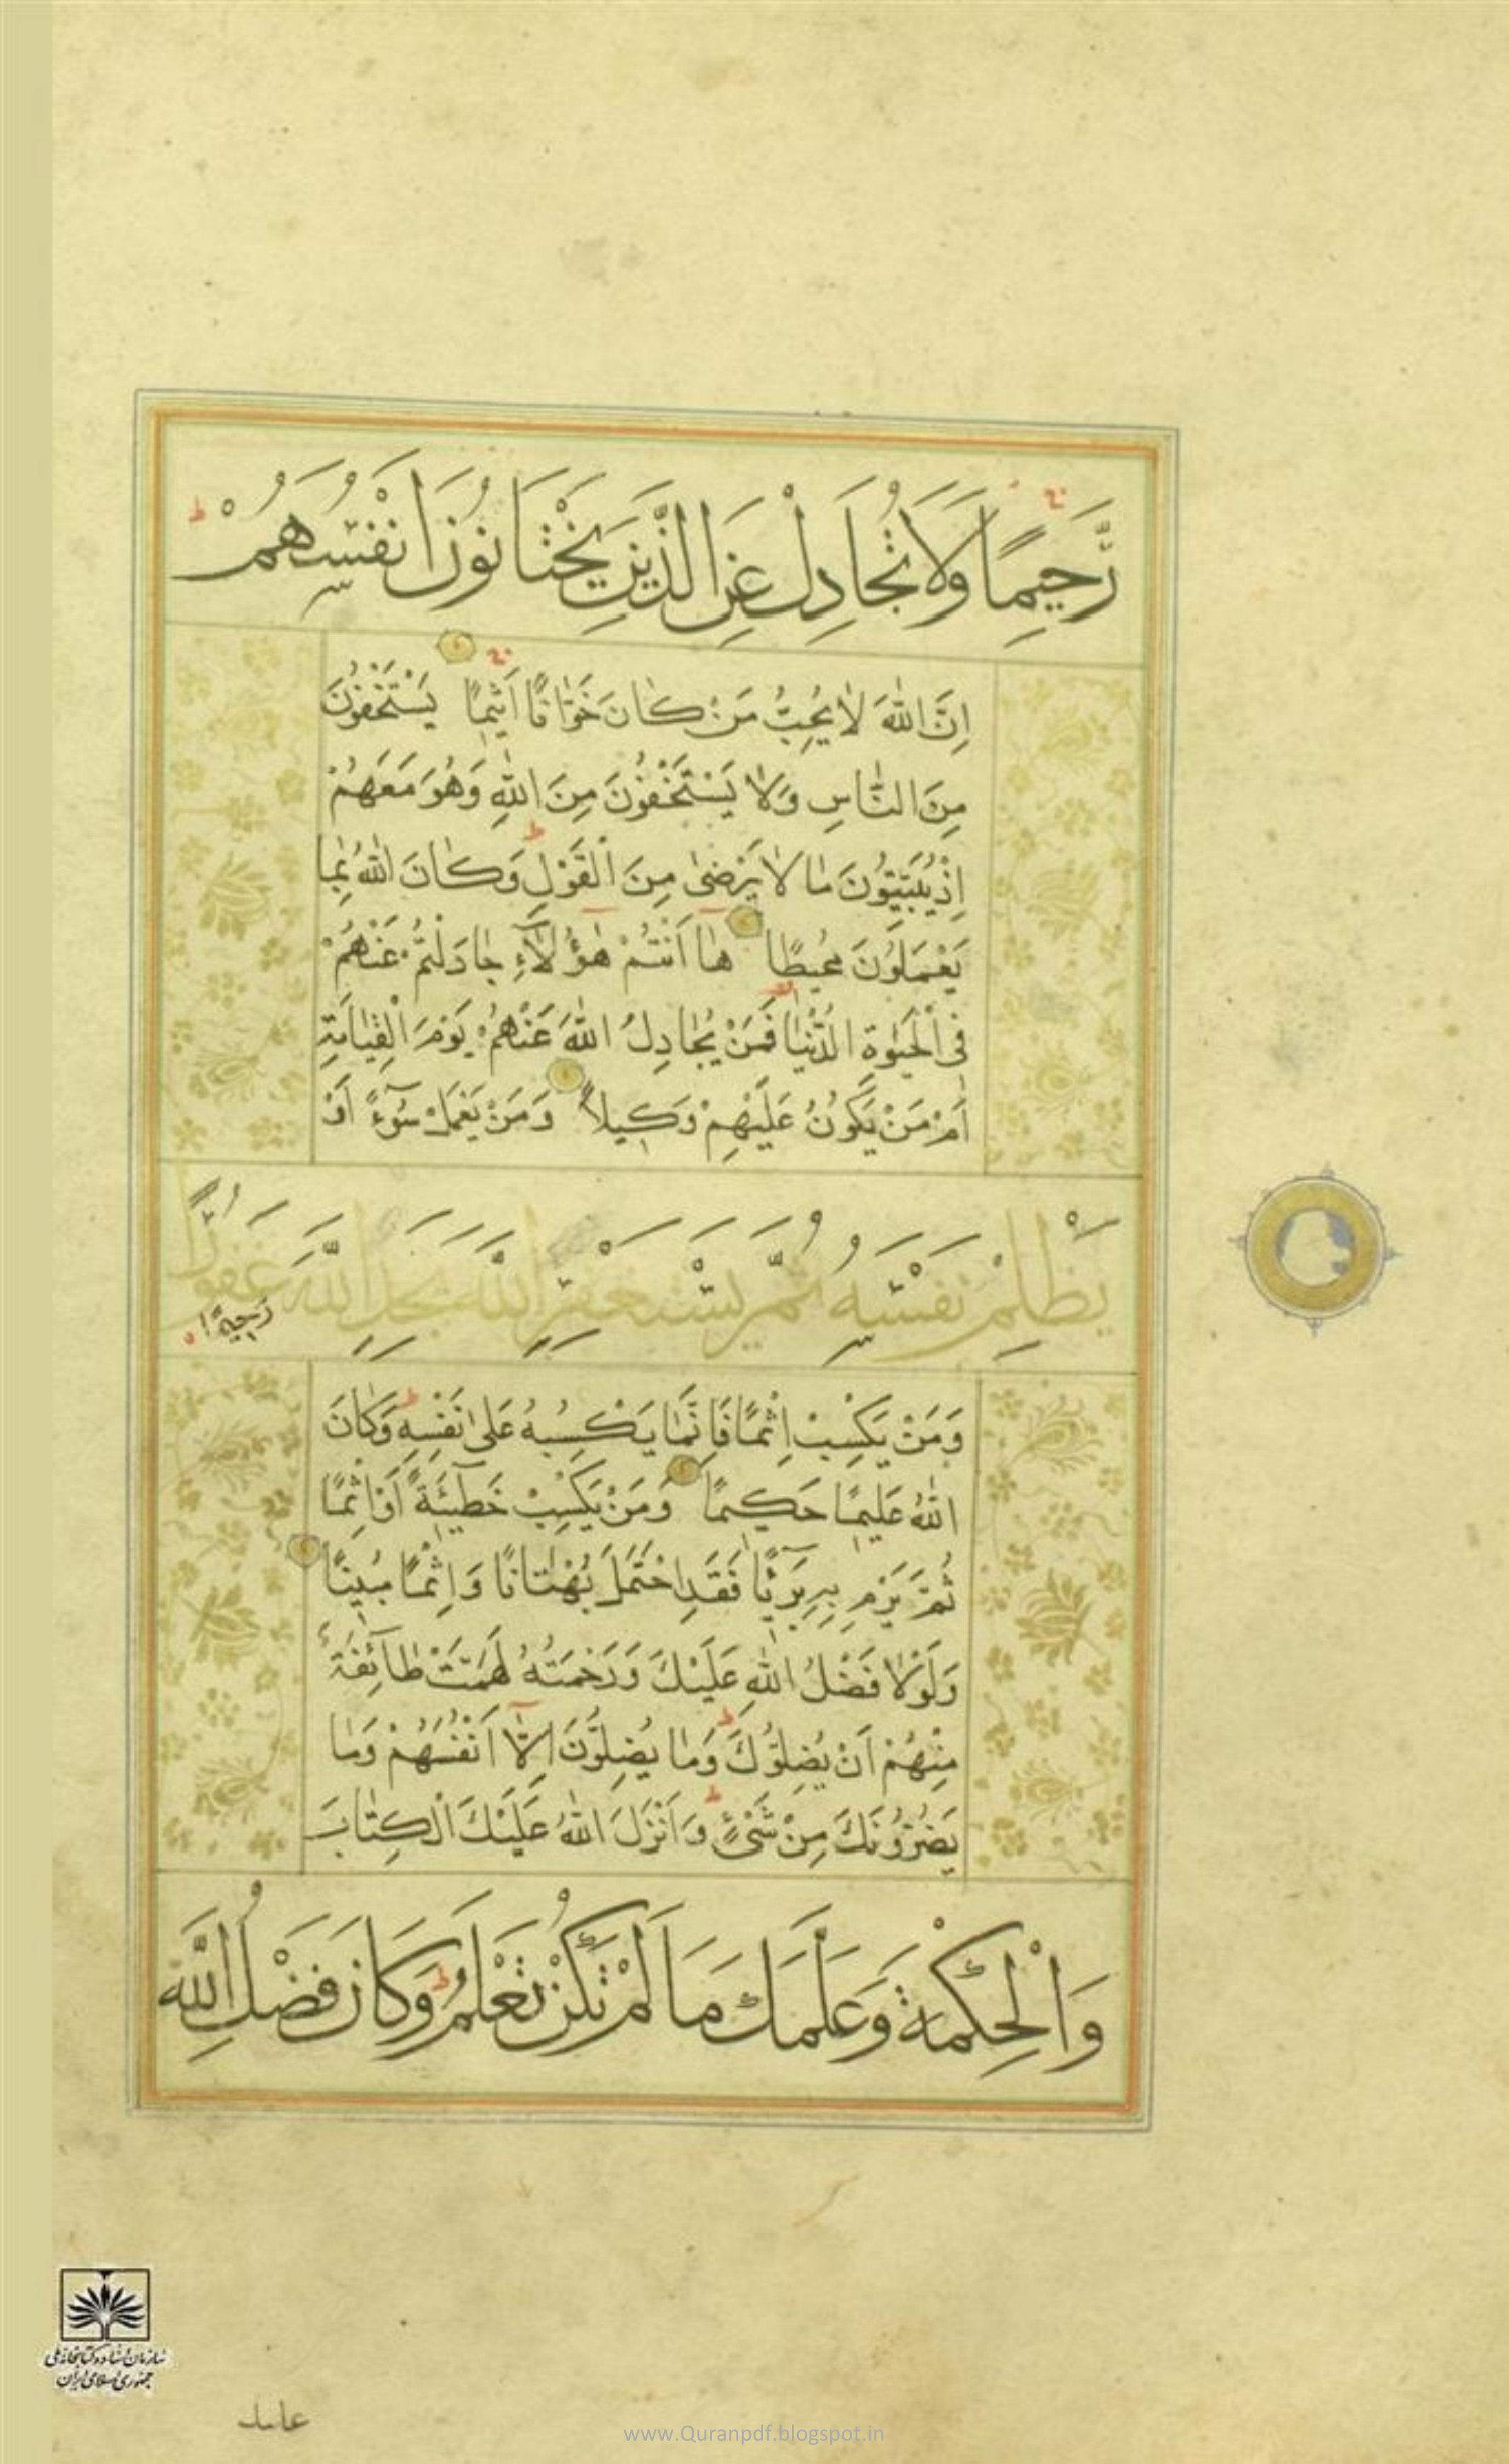 رَّحِيمًا وَلَا تُجَادِلْ عَنِ الَّذِينَ يَخْتَانُونَ اَنْفُسَهُمْ ط
اِنَّ اللّٰهَ لَا يُحِبُّ مَنْ كَانَ خَوَّانًا اَثِيمًا يَسْتَخْفُونَ
مِنَ النَّاسِ وَلَا يَسْتَخْفُونَ مِنَ اللّٰهِ وَهُوَ مَعَهُمْ
اِذْ يُبَيِّتُونَ مَا لَا يَرْضٰى مِنَ الْقَوْلِ ط وَكَانَ اللّٰهُ بِمَا
يَعْمَلُونَ مُحِيطًا هَا اَنْتُمْ هٰؤُلَآءِ جَادَلْتُمْ عَنْهُمْ
فِى الْحَيٰوةِ الدُّنْيَا فَمَنْ يُجَادِلُ اللّٰهَ عَنْهُمْ يَوْمَ الْقِيَامَةِ
اَمْ مَنْ يَكُونُ عَلَيْهِمْ وَكِيلًا وَمَنْ يَعْمَلْ سُوٓءً اَوْ
يَظْلِمْ نَفْسَهُ ثُمَّ يَسْتَغْفِرِ اللّٰهَ يَجِدِ اللّٰهَ غَفُورًا
رَحِيمًا
وَمَنْ يَكْسِبْ اِثْمًا فَاِنَّمَا يَكْسِبُهُ عَلٰى نَفْسِهِ ط وَكَانَ
اللّٰهُ عَلِيمًا حَكِيمًا وَمَنْ يَكْسِبْ خَطِيٓئَةً اَوْ اِثْمًا
ثُمَّ يَرْمِ بِهِ بَرِيٓئًا فَقَدِ احْتَمَلَ بُهْتَانًا وَاِثْمًا مُبِينًا
وَلَوْلَا فَضْلُ اللّٰهِ عَلَيْكَ وَرَحْمَتُهُ لَهَمَّتْ طَآئِفَةٌ
مِنْهُمْ اَنْ يُضِلُّوكَ ط وَمَا يُضِلُّونَ اِلَّآ اَنْفُسَهُمْ وَمَا
يَضُرُّونَكَ مِنْ شَىْءٍ ط وَاَنْزَلَ اللّٰهُ عَلَيْكَ الْكِتَابَ
وَالْحِكْمَةَ وَعَلَّمَكَ مَا لَمْ تَكُنْ تَعْلَمُ ط وَكَانَ فَضْلُ اللّٰهِ
سازمان اسناد و کتابخانه ملی
جمهوری اسلامی ایران
علیک
www.Quranpdf.blogspot.in